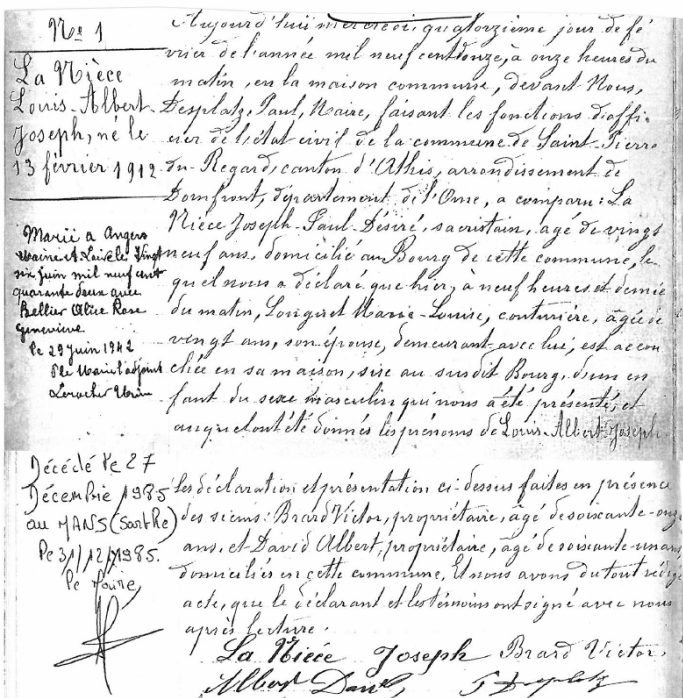 Nº 1
La Nièce
Louis-Albert
Joseph, né le
13 février 1912
Marié à Angers
Maine et Loire le vingt
six juin mil neuf cent
quarante deux avec
Bellier Alice Rose
Geneviève
le 29 juin 1942
Le Maire adjoint
Décédé le 27
Décembre 1985
au MANS (Sarthe)
le 31/12/1985.
le Maire,
Aujourd'hui mercredi, quatorzième jour de fé
vrier de l'année mil neuf cent douze, à onze heures du
matin, en la maison commune, devant Nous,
Desplatz, Paul, Maire, faisant les fonctions d'offi
cier de l'état civil de la commune de Saint-Pierre
du-Regard, canton d'Athis, arrondissement de
Domfront, département de l'Orne, a comparu: La
Nièce Joseph-Paul-Désiré, sacristain, agé de vingt
neuf ans, domicilié au Bourg de cette commune, le
quel nous a déclaré que hier, à neuf heures et demie
du matin, Marie-Louise, couturière, âgée de
vingt ans, son épouse, demeurant avec lui, est accou
chée en sa maison, sise au susdit Bourg, d'un en
fant du sexe masculin qui nous a été présenté, et
auquel ont été donnés les prénoms de Louis-Albert-Joseph
Les déclaration et présentation ci-dessus faites en présence
des sieurs: Brard Victor, propriétaire, âgé de soixante-onze
ans, et David Albert, propriétaire, âgé de soixante-un ans,
domiciliés en cette commune, Et nous avons du tout rédigé
acte, que le déclarant et les témoins ont signé avec nous
après lecture.
La Nièce Joseph Brard Victor
Albert David, P Desplatz